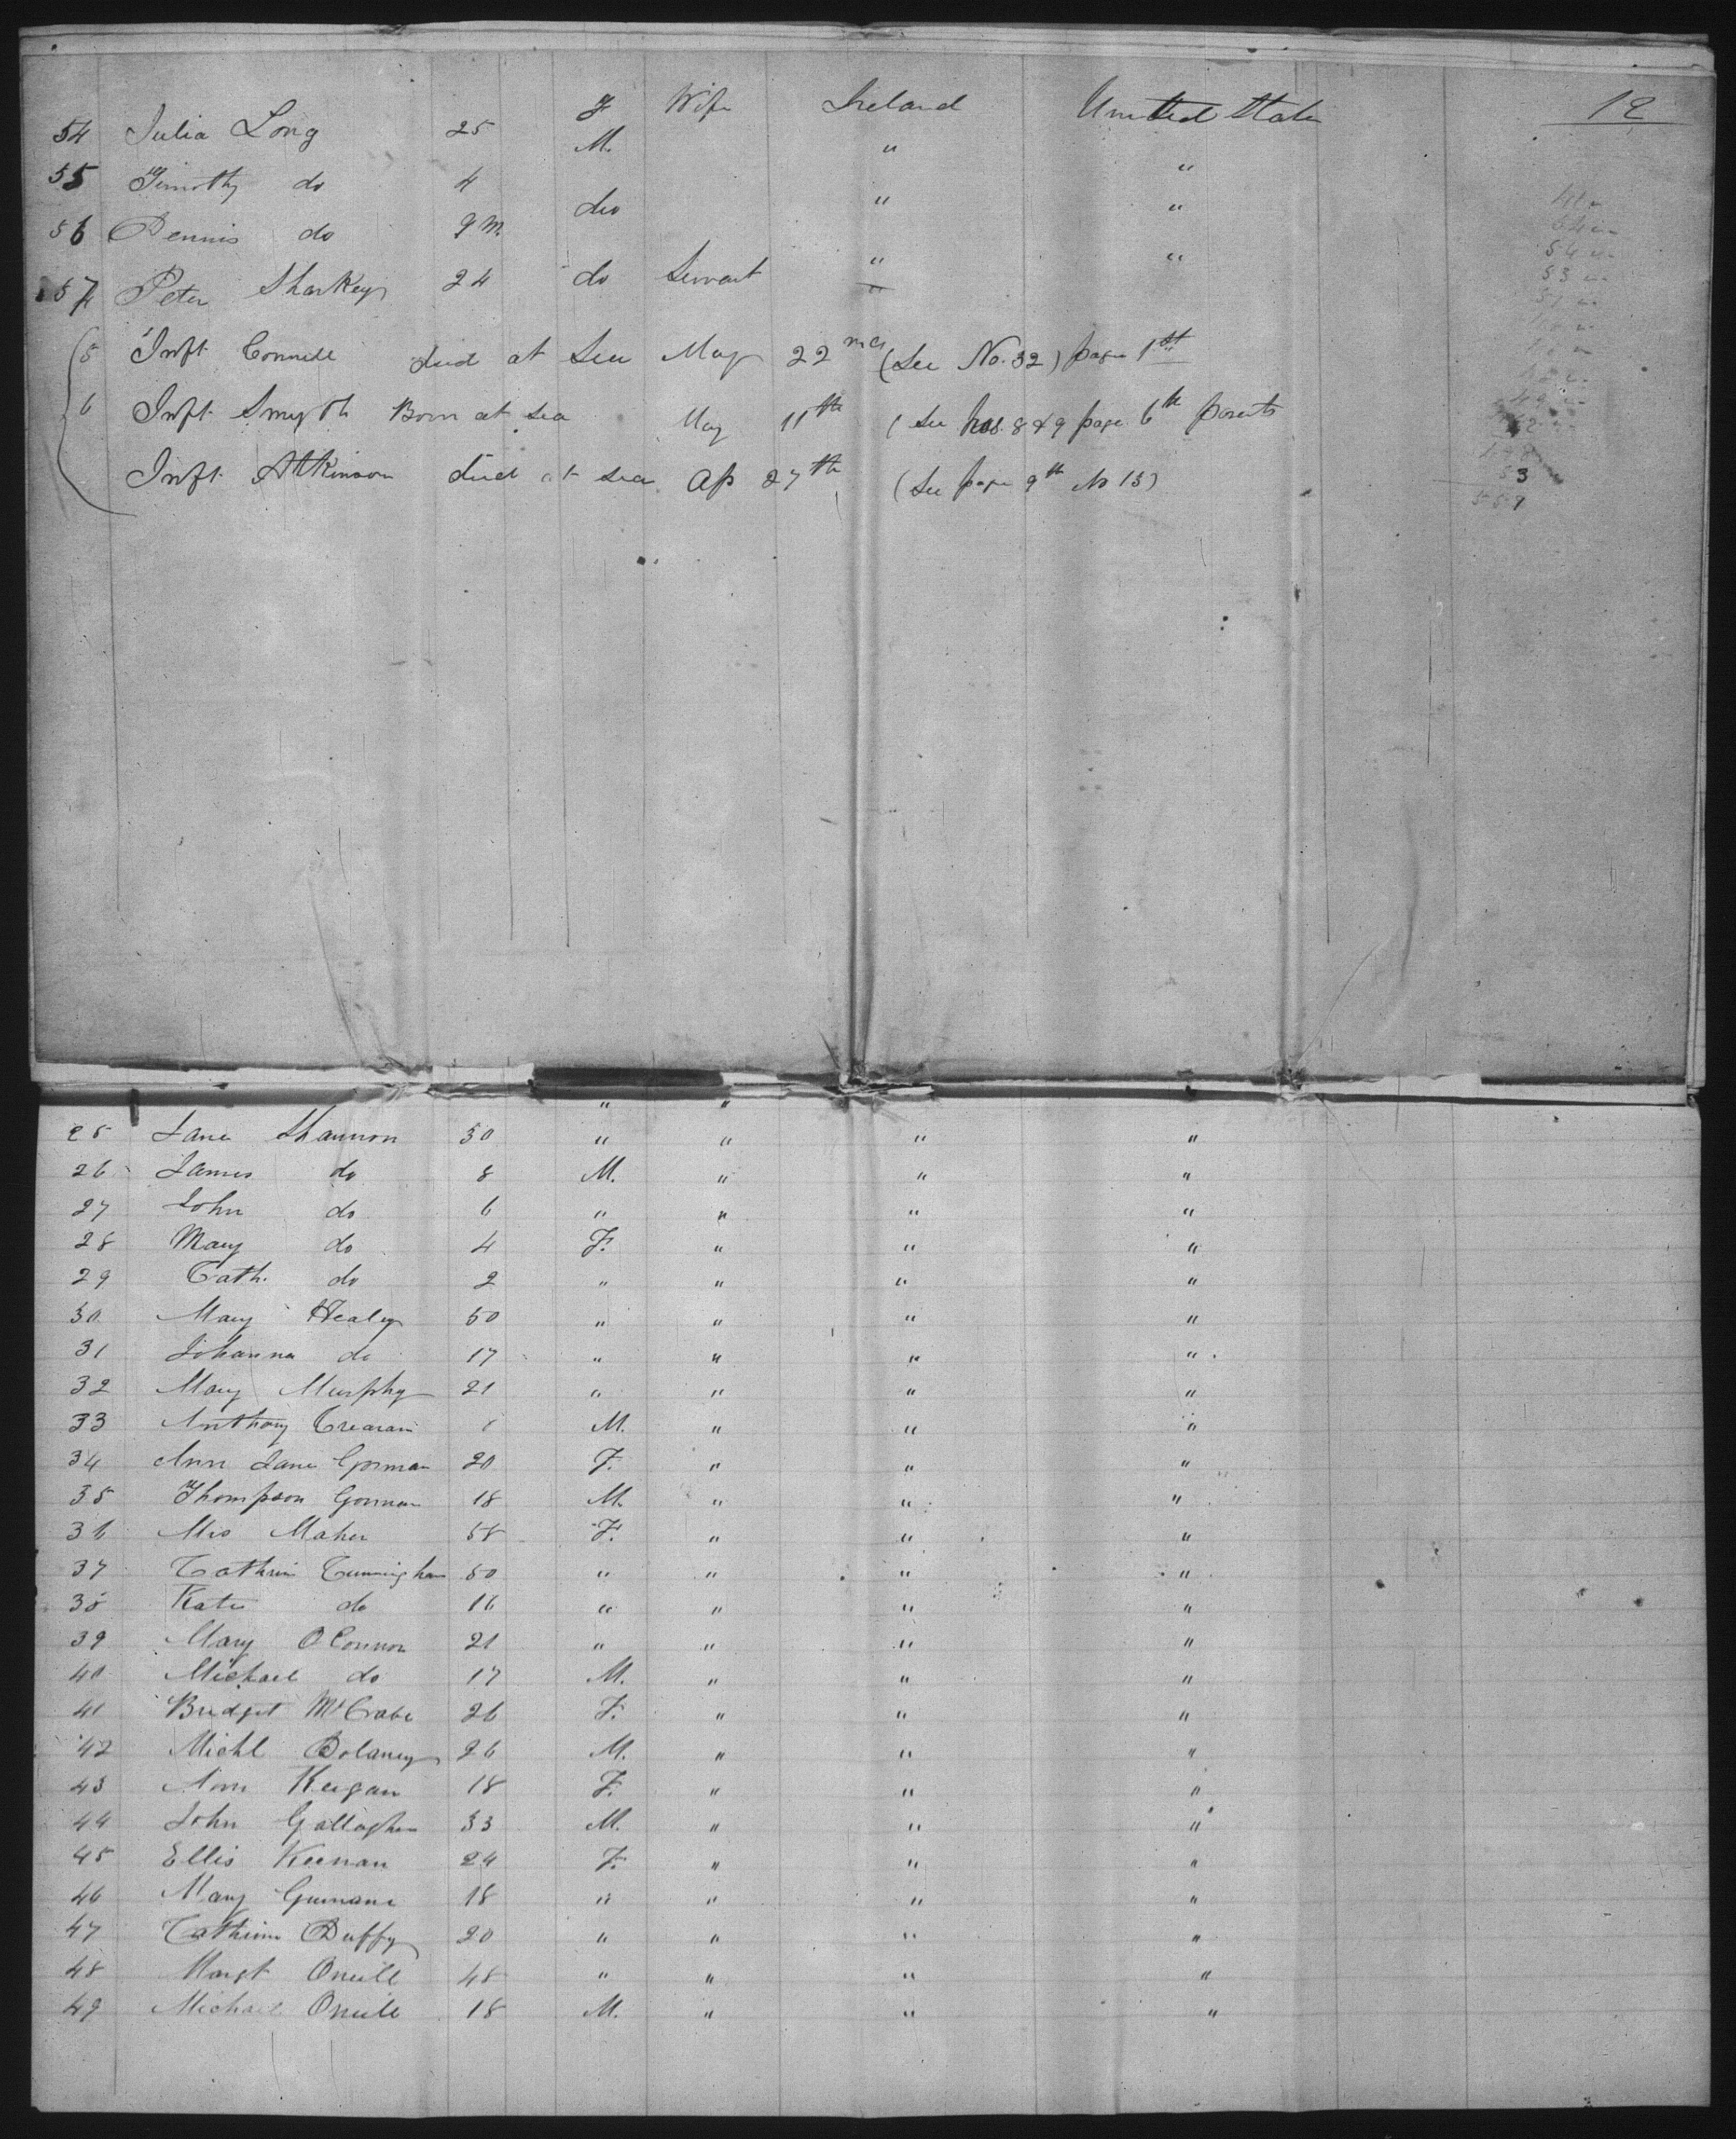 12
54 Julia Long 25 F Wife Ireland United State
55 Timothy do 4 M. " "
56 Dennis do 9 M. do " "
57 Peter Sharkey 24 do Servant " "
5 Inft. Connell died at Sea May 22nd (See No. 32) page 1st
6 Inft. Smyth Born at sea May 11th (See nos. 8 & 9 page 6th parents
Inft. Atkinson died at sea Ap 27th (See page 9th No 13)
3
559
" " "
25 Jane Shannon 30 " " " "
26 James do 8 M. " " "
27 John do 6 " " " "
28 Mary do 4 F. " " "
29 Cath. do 2 " " " "
30 Mary Healey 50 " " " "
31 Johanna do 17 " " " "
32 Mary Murphy 21 " " " "
33 Anthony M. " " "
34 Ann Jane Gorman 20 F. " " "
35 Thompson Gorman 18 M. " " "
36 Mrs Maher 58 F. " " "
37 Cathrin Cunningham 50 " " " "
38 Kate do 16 " " " "
39 Mary OConnor 21 " " " "
40 Michael do 17 M. " " "
41 Bridget McCrabe 26 F. " " "
42 Michl Dolaney 26 M. " " "
43 Ann Keegan 18 F. " " "
44 John Gallagher 33 M. " " "
45 Ellis Keenan 24 F. " " "
46 Mary 18 " " " "
47 Cathrine Duffy 20 " " " "
48 Margt Oneill 48 " " " "
49 Michael Oneill 18 M. " " "